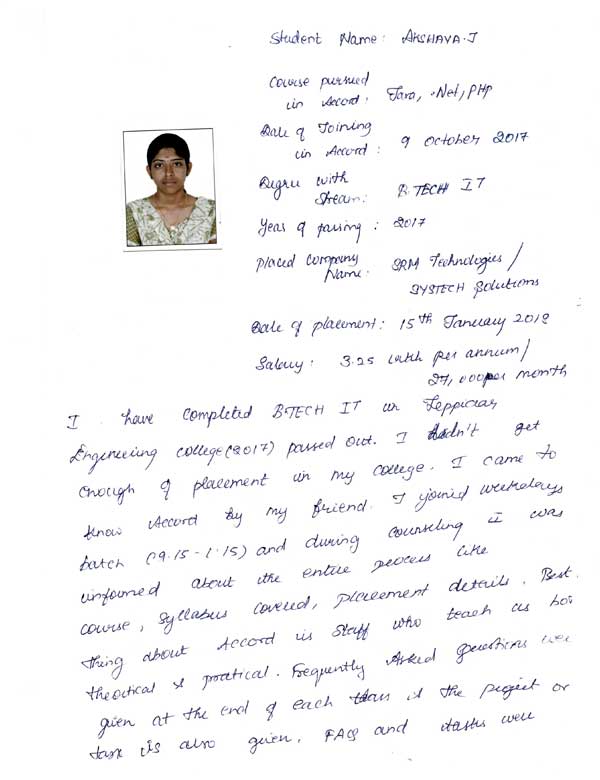 Student Name: AKSHAYA.J
Course pursued
in Accord: Java, .Net, PHP
Date of Joining
in Accord: 9 October 2017
Degree with
Stream: B.TECH IT
Year of passing: 2017
Placed Company
Name: SRM Technologies /
SYSTECH Solutions
Date of placement: 15th January 2018
Salary: 3.25 lakh per annum/
27,000per month
I have completed B.TECH IT in Jeppiaar
Engineering college(2017) passed out. I didn't get
enough of placement in my college. I came to
know Accord by my friend. I joined weekdays
batch (9.15-1.15) and during counseling I was
informed about the entire process like
course, syllabus covered, placement details. Best
thing about Accord is staff who teach us both
theoritical & pratical. Frequently Asked Questions were
given at the end of each class & the project or
task is also given. FAQ and tasks were